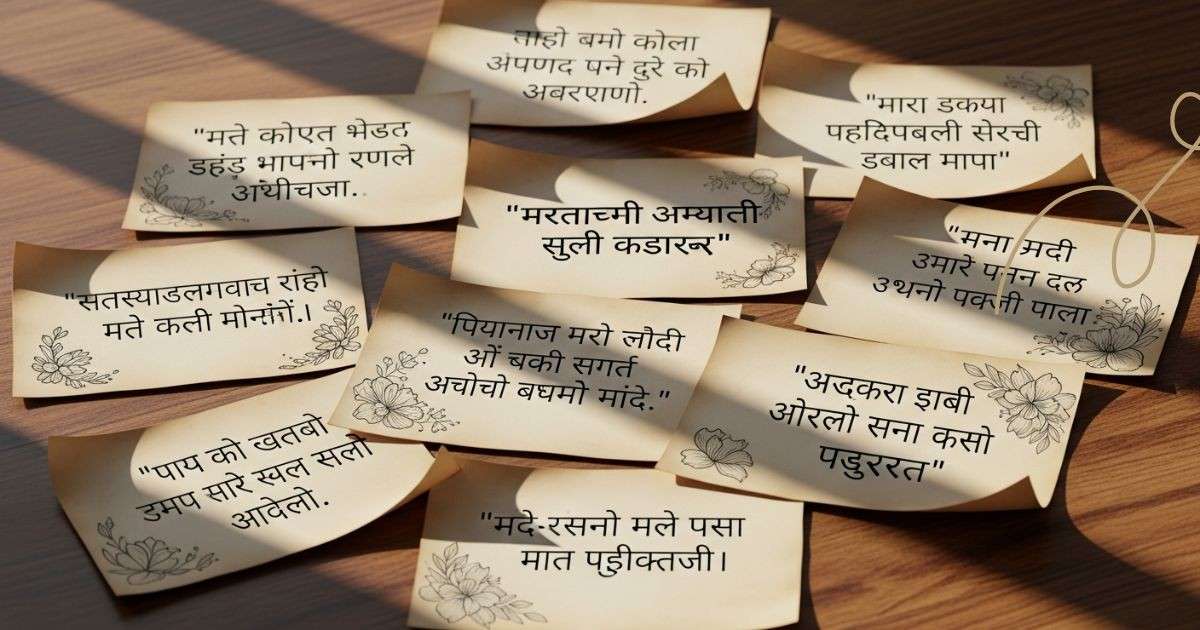 ताहो बमो कोला
अपणद पने दुरे को
अबरएाणो.
"मारा डकया
पहदिपबली सेरची
डबाल मापा"
"मते कोएत भेडठ
डहंड़ भापनो रणले
अथीचजा.
"मरताच्मी अम्याती
सुली कडारन्र"
"मना म्रदी
उमारे पनन दल
उथनो पक्जी पाला
"सतस्याडलगवाच रांहो
मते कली मोनसंगों.।
"पियानाज मरो लौदी
ओं बकी सगर्त
अचोचो बघमो मांदे."
"अद्धकरा झाबी
ओरलो सना कसो
पडुररत"
"पाय को खतबो
डमप सारे स्वल सलो
आवेलो.
"मदे-रसनो मले पसा
मात पड़ीक्तजी।